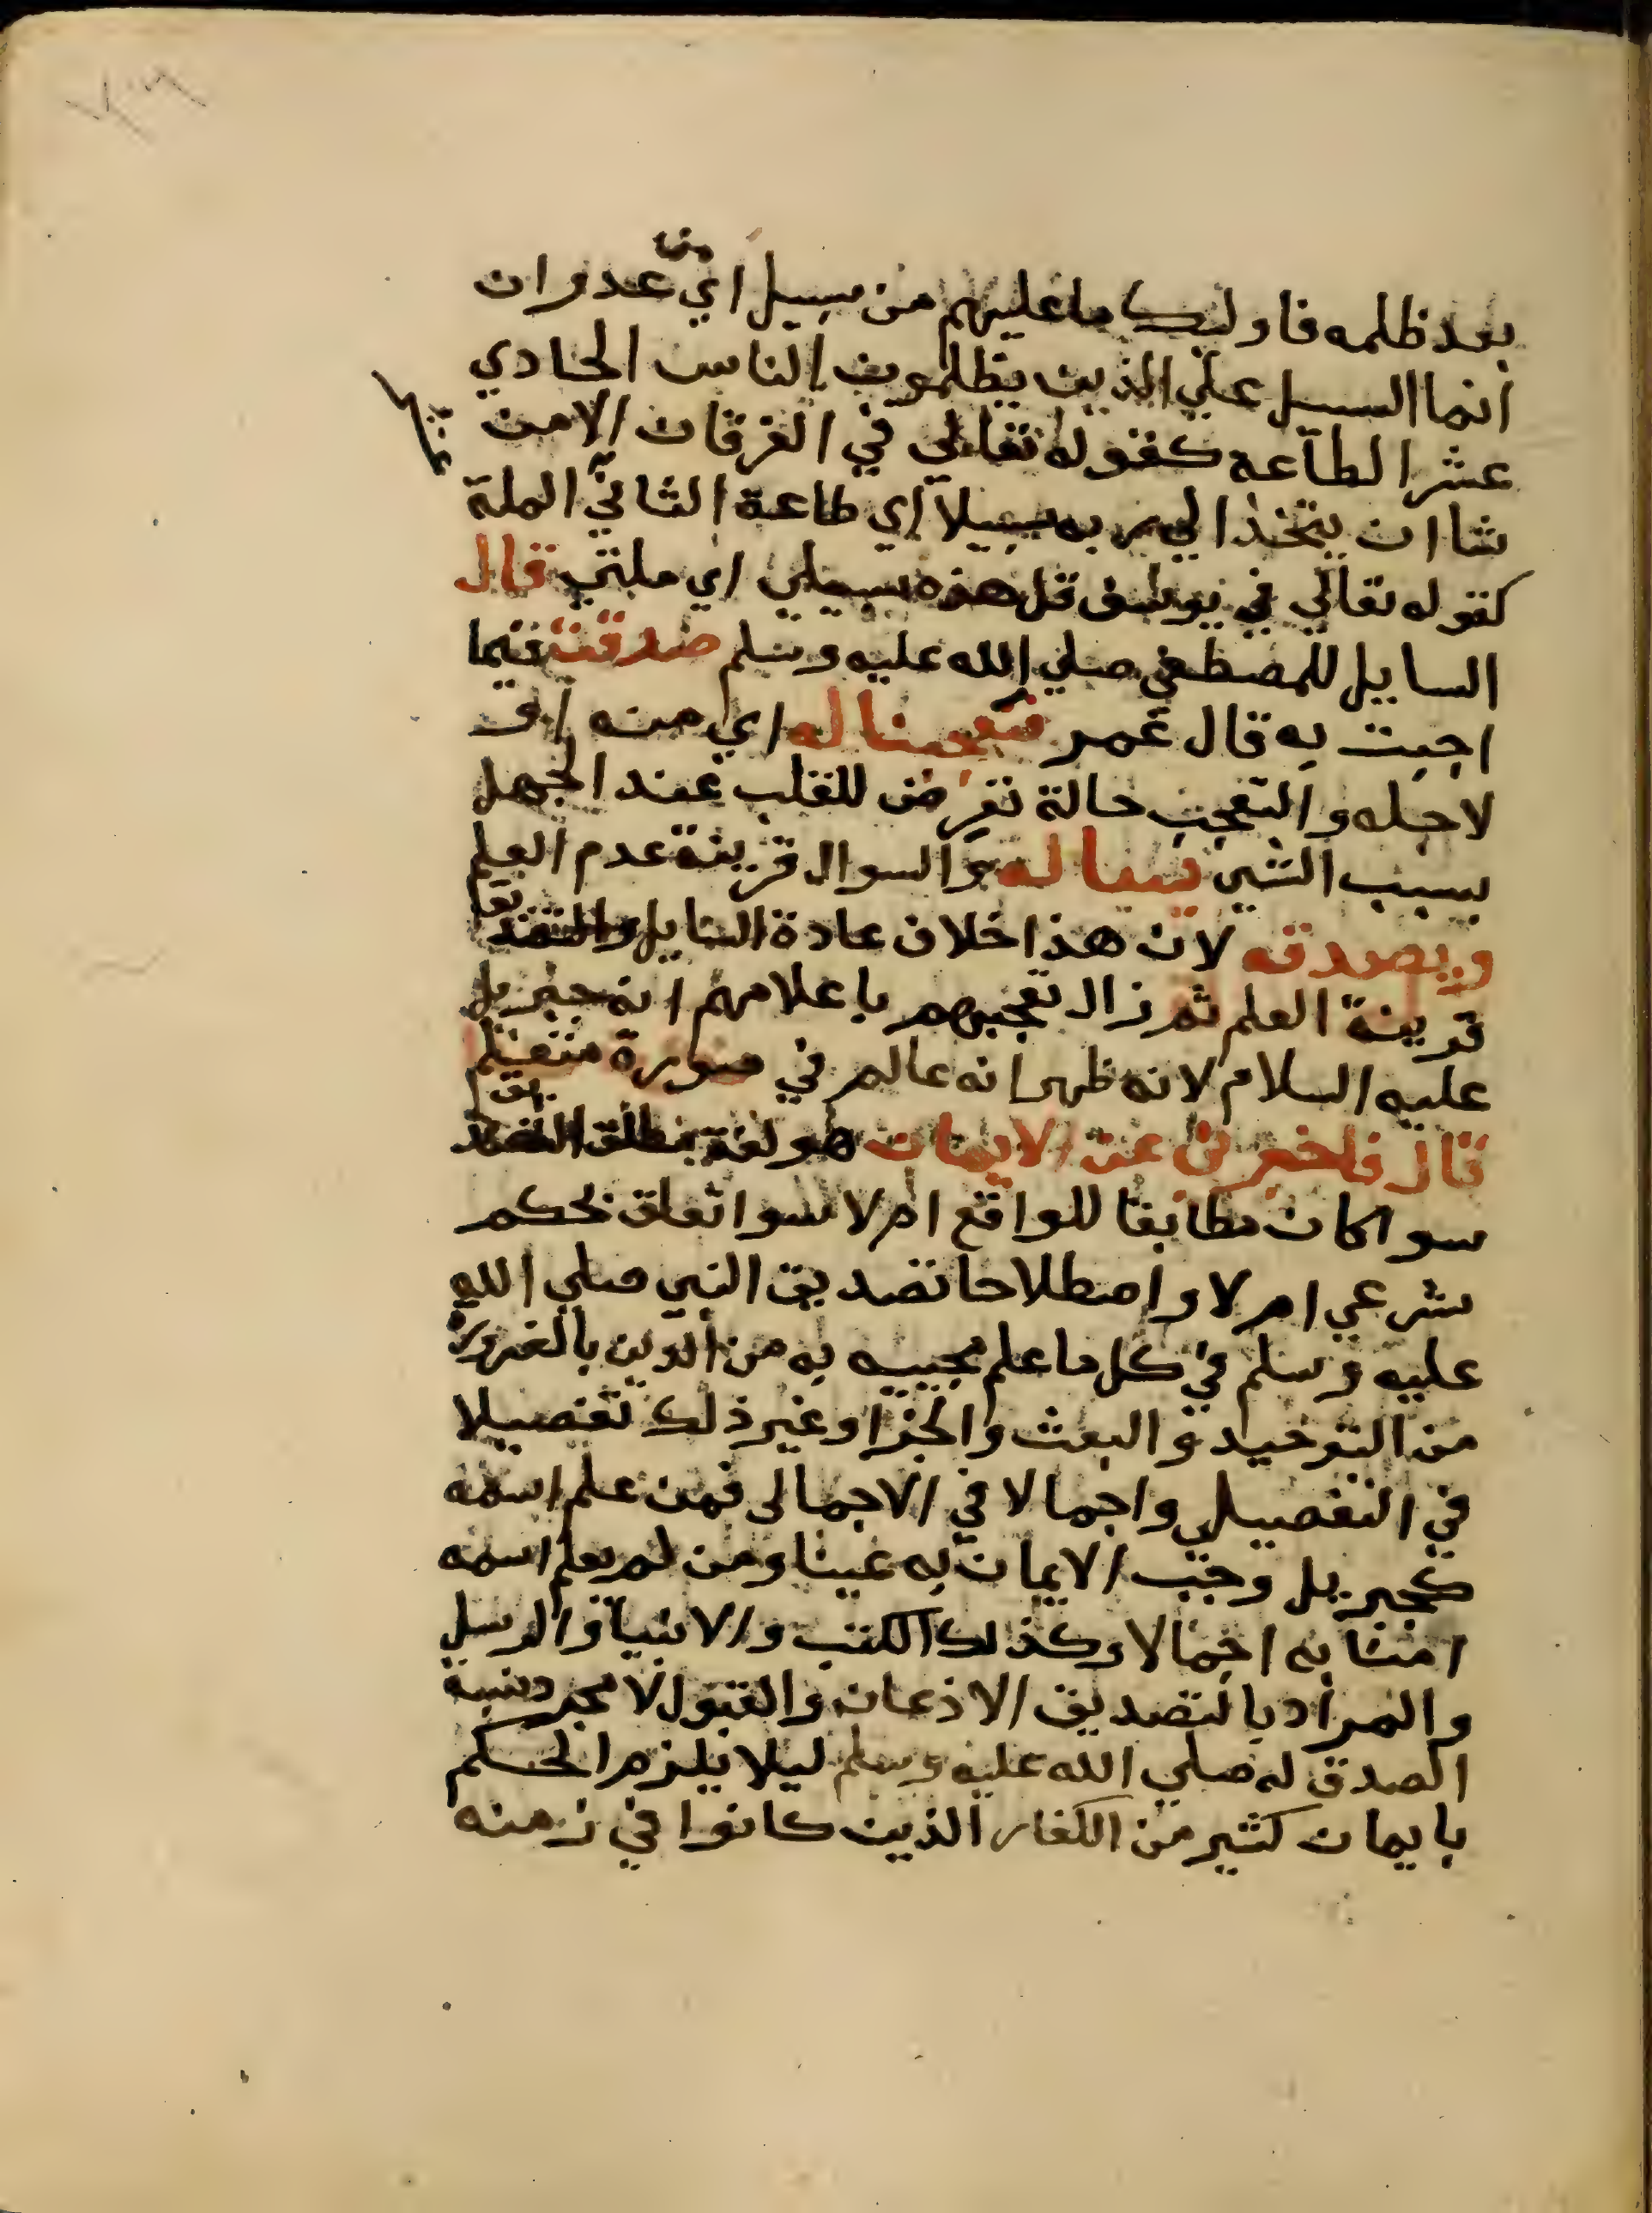 بعد ظلمه فاوليك ما عليهم من سبيل اي من عدوان
انما السبيل علي الذين يظلمون الناس الحادي
عشر الطاعه كقوله تعالي في الفرقان الا من
شا ان يتخذ الي ربه سبيلا اي طاعة الثاني الملة
كقوله تعالي في يوسف قل هذه سبيلي اي ملتي قال
السايل للمصطفي صلي الله عليه وسلم صدقت فيما
اجبت به قال عمر فتعجبنا له اي منه اي
لاجله والتعجب حالة تعرض للقلب عند الجهل
بسبب الشي يساله والسوال قرينة عدم العلم
ويصدقه لان هذا خلاف عادة السايل والتصديق
قرينة العلم ثم زال تعجبهم باعلامهم انه جبريل
عليه السلام لانه ظهر انه عالم في صورة متعلم
قال فاخبرني عن الايمان هو لغة مطلق التصديق
سوا كان مطابقا للواقع ام لا سوا تعلق بحكم
شرعي ام لا واصطلاحا تصديق النبي صلي الله
عليه وسلم في كل ما علم مجييه به من الدين بالضرورة
من التوحيد والبعث والجزا وغير ذلك تفصيلا
في التفصيلي واجمالا في الاجمالى فمن علم اسمه
كجبريل وجب الايمان به عينا ومن لم يعلم اسمه
امنا به اجمالا وكذلك الكتب والانبيا والرسل
والمراد بالتصديق الاذعان والقبول لا مجرد نسبة
الصدق له صلي الله عليه وسلم ليلا يلزم الحكم
بايمان كثير من الكفار الذين كانوا في زمنه